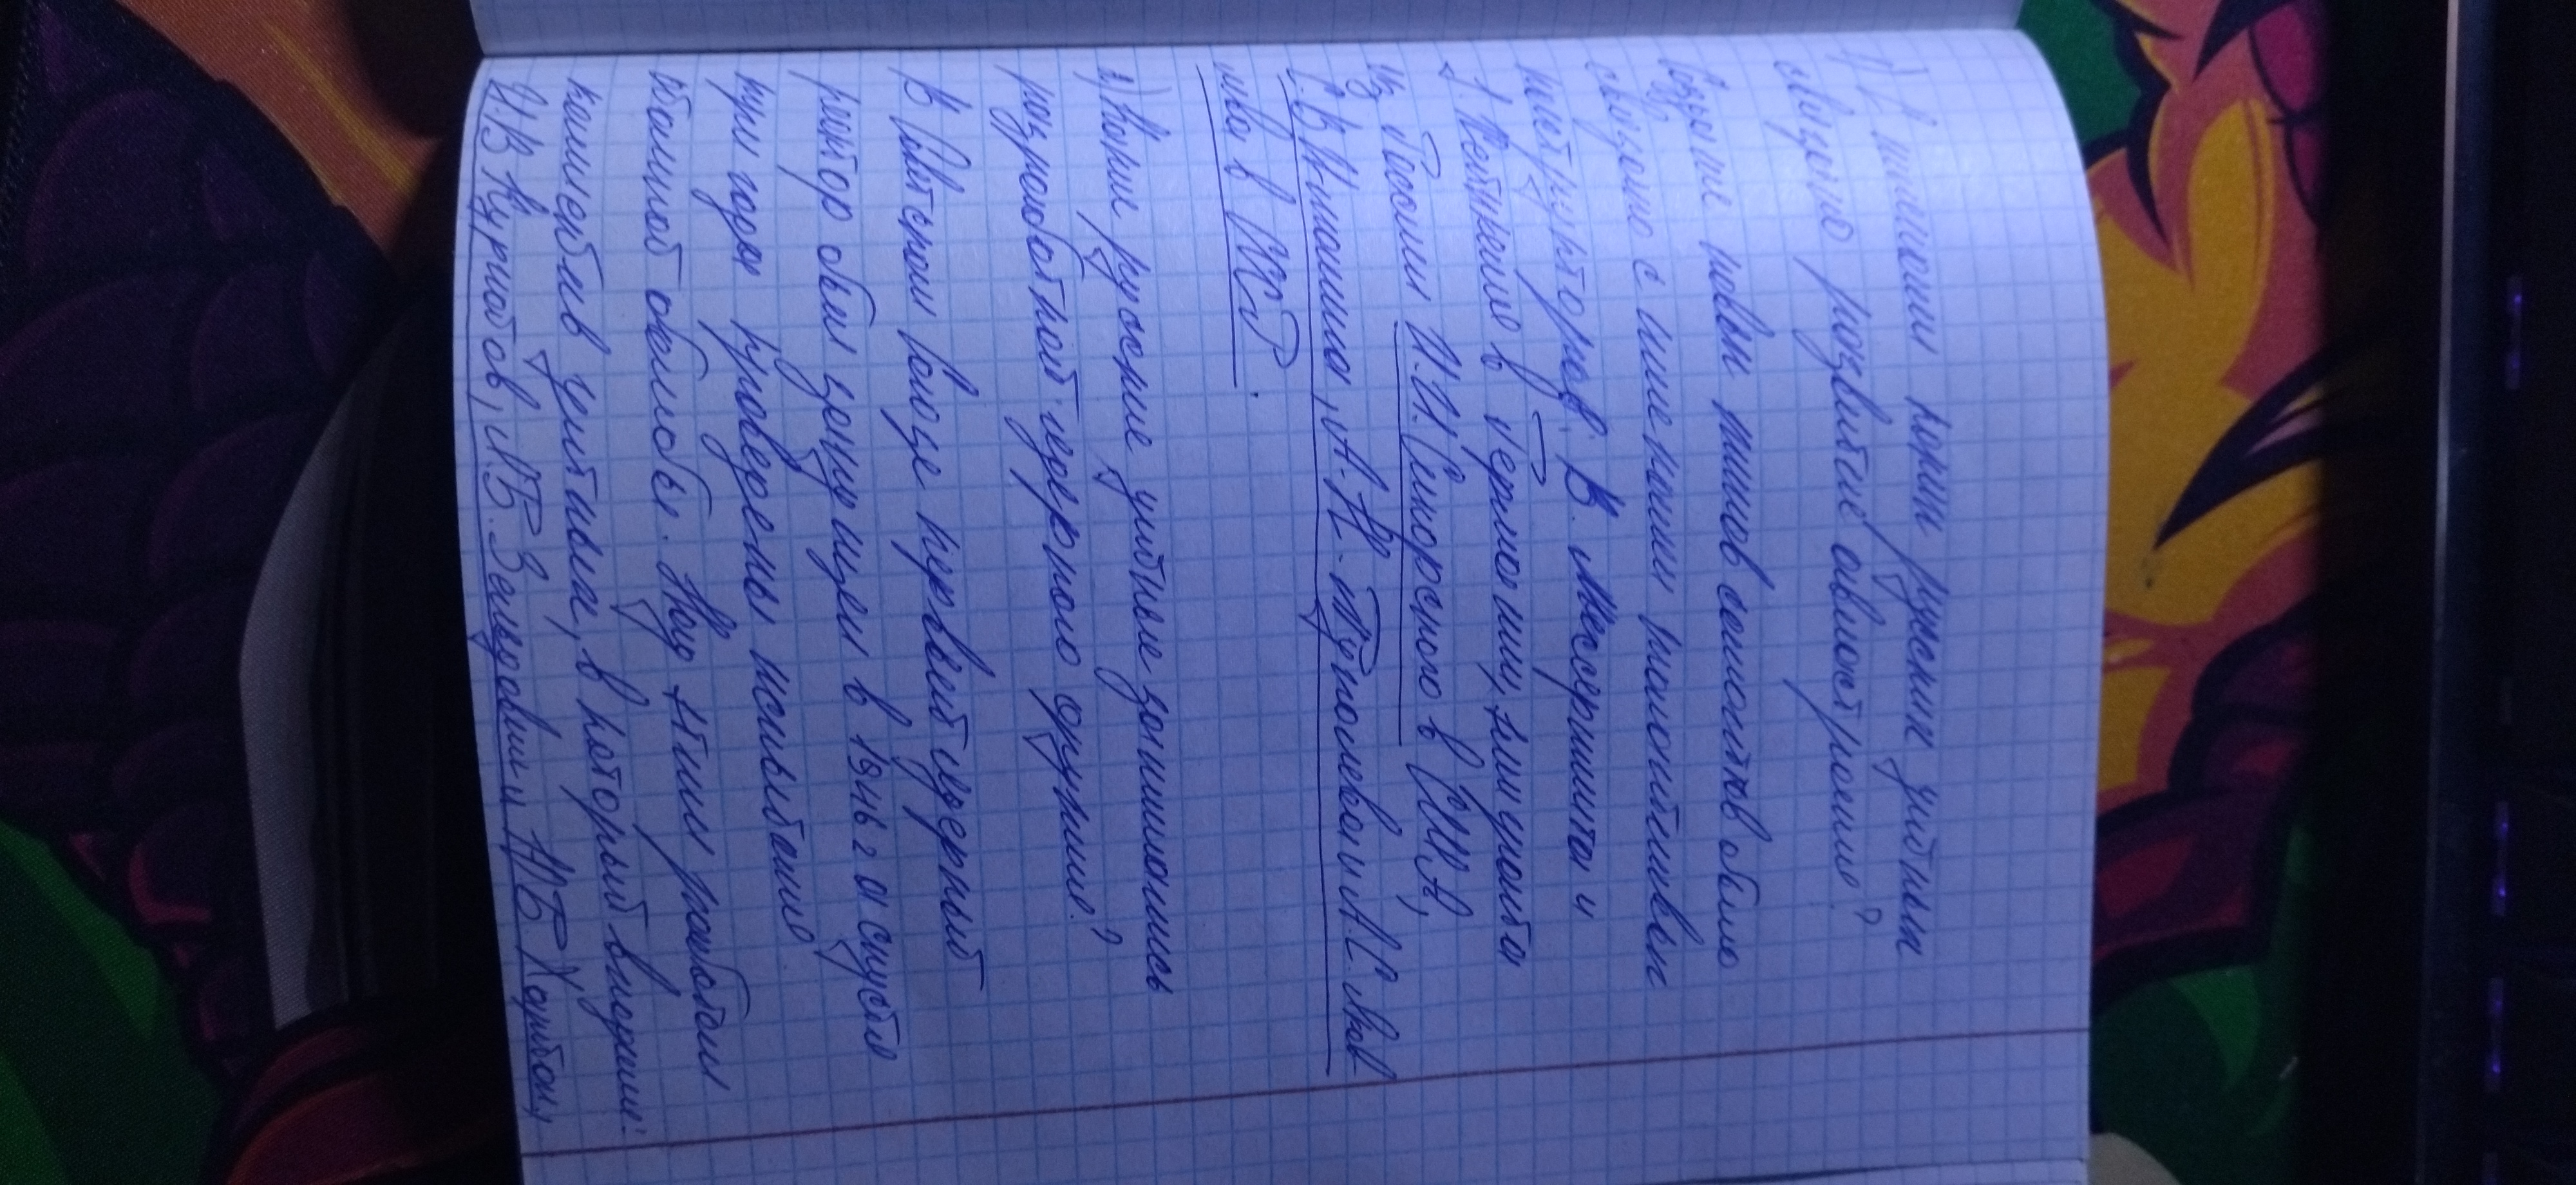 1) С именами каких русских учёных
связано развитие авиастроения?
Создание новых типов самолётов было
связано с именами талантливых
конструкторов: В. Мессершмитта и
Э. Хейнкеля в Германии, эмигранта
из России И.И. Сикорского в США,
С.В. Илюшина, А.Н. Туполева и А.С. Яков
лева в СССР.
2) Какие русские учёные занимались
разработкой ядерного оружия?
В Советском Союзе первый ядерный
реактор был запущен в 1946 г а спустя
три года проведены испытания
атомной бомбы. Над этим работал
коллектив учёных, в который входили:
И.В Курчатов, Я.Б. Зельдович и Ю.Б Харитон